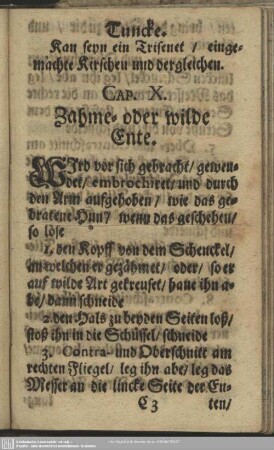 Tuncke.
Kan seyn ein Trisenet / einge-
machte Kirschen und dergleichen.
CAP. X.
Zahme- oder wilde
Ente.
WIrd vor sich gebracht / gewen-
det / embrochiret / und durch
den Arm aufgehoben / wie das ge-
bratene Hun / wenn das geschehen /
so löse
1. den Kopff von dem Schenckel /
an welchen er gezähmet / oder / so er
auf wilde Art gekreuset / haue ihn a-
be / dann schneide
2. den Hals zu beyden Seiten loß /
stoß ihn in die Schüssel / schneide
3. Contra- und Oberschnitt am
rechten Fliegel / leg ihn abe / leg das
Messer an die lincke Seite der En-
C 3 ten /